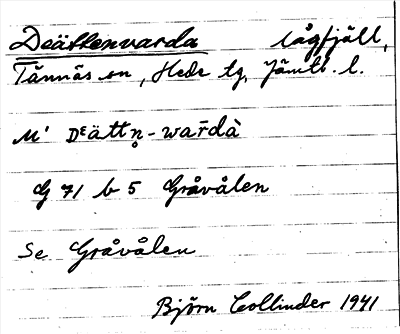 Deättenvarda lågfjäll,
Tännäs sn, Hede tg, Jämtl. l.
M' Dᴱättn̥-war̄dà
G 71 b 5 Gråvålen
Se Gråvålen
Björn Collinder 1941